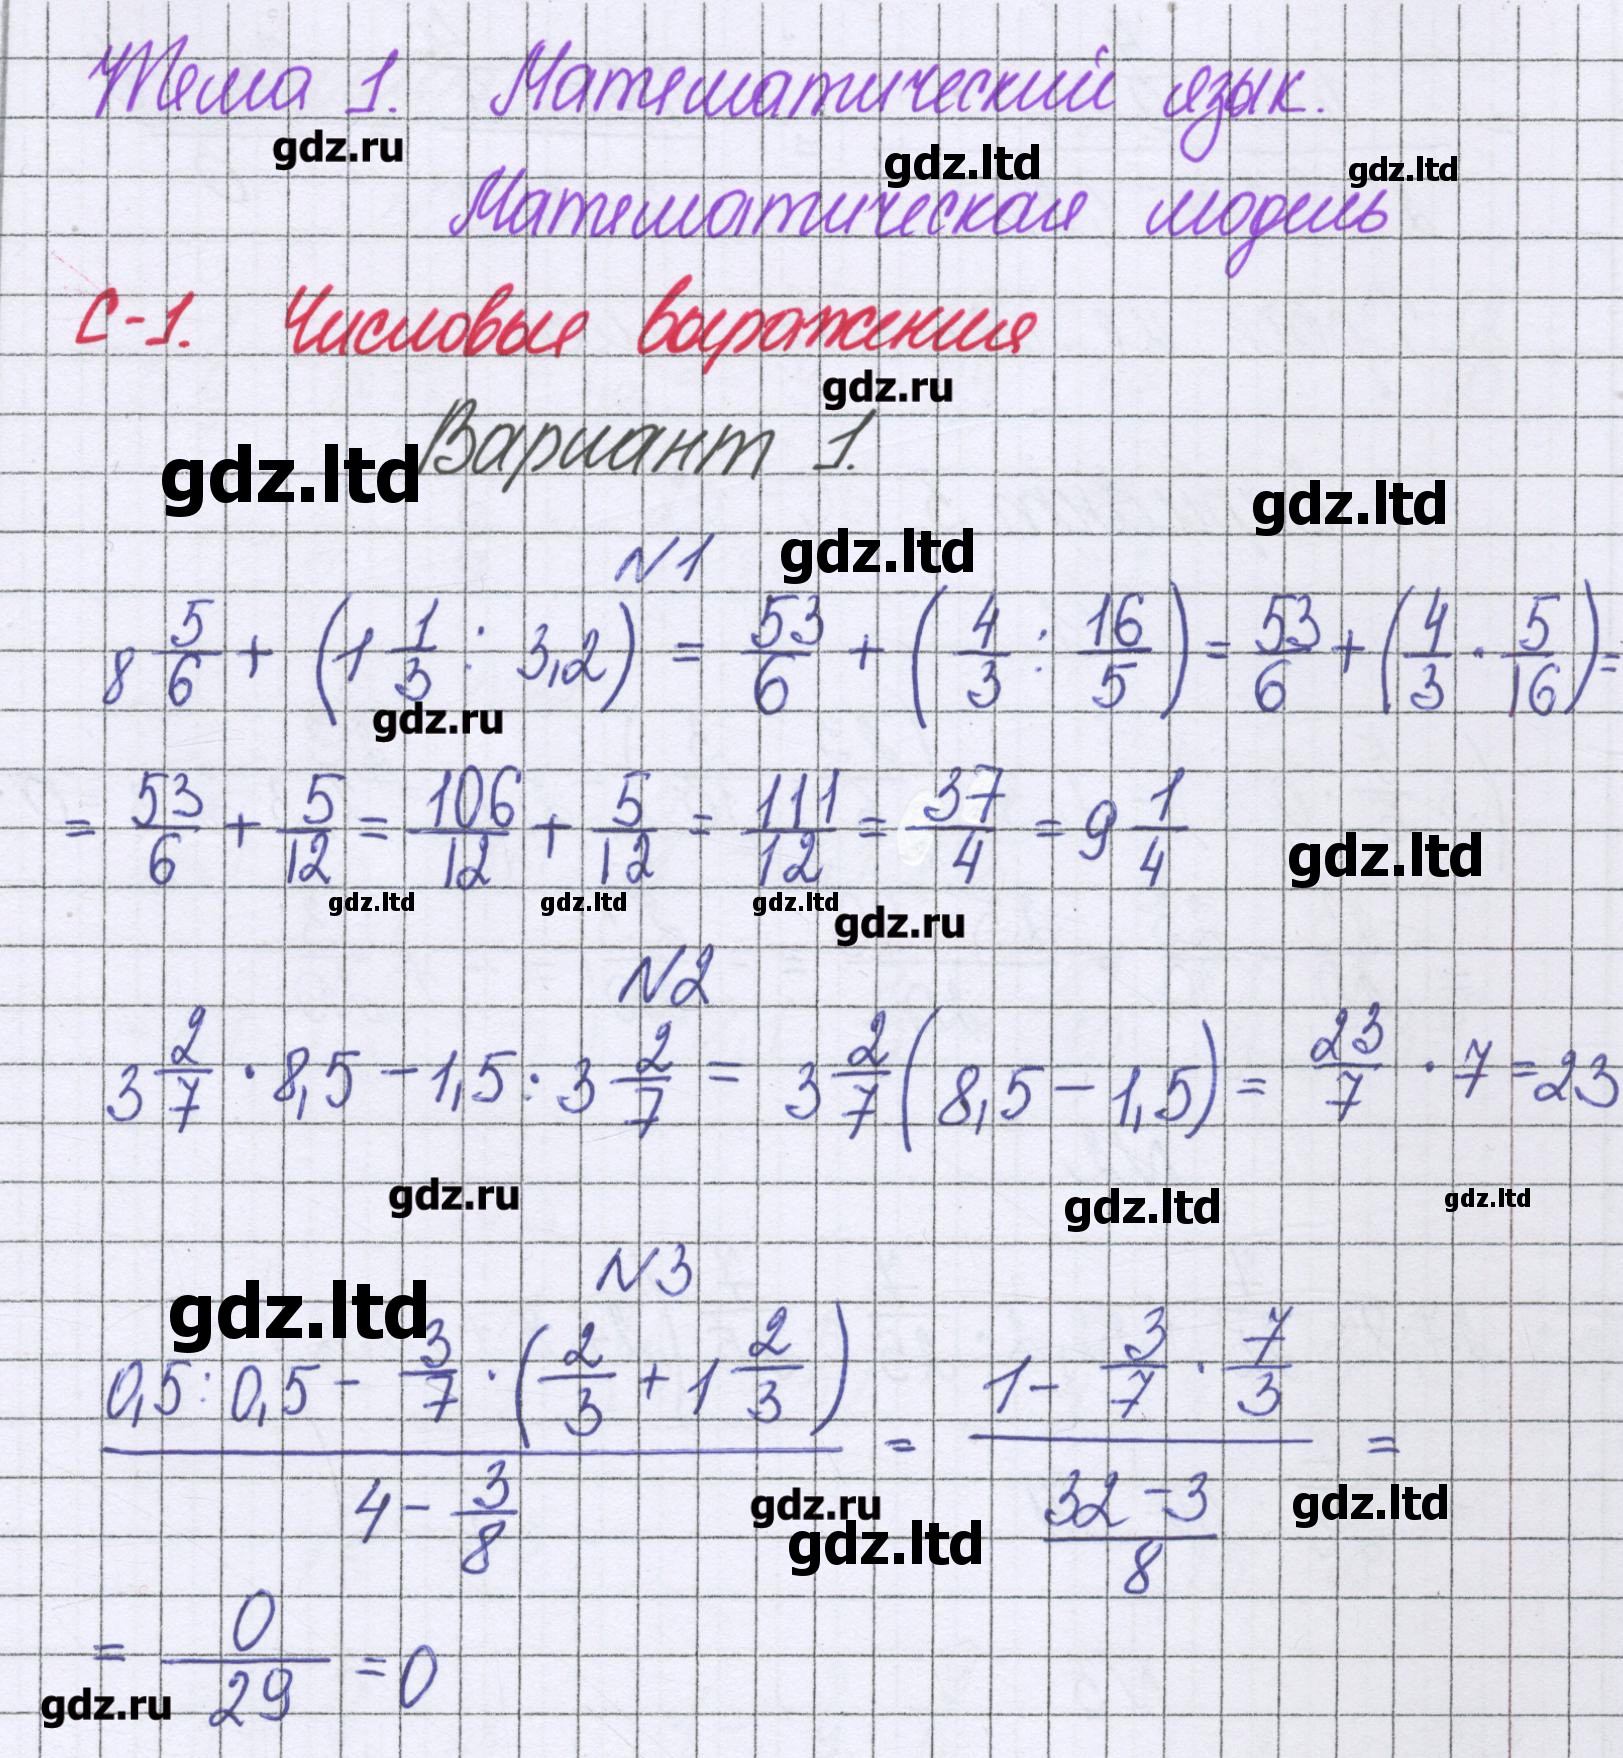 Тема 1. Математический язык.
gdz.ru gdz.ltd gdz.ltd
Математическая модель
С-1. Числовые выражения
gdz.ru
Вариант 1.
gdz.ltd gdz.ltd
№1 gdz.ltd
8 5/6 + (1 1/3 : 3,2) = 53/6 + (4/3 : 16/5) = 53/6 + (4/3 · 5/16) =
gdz.ru
= 53/6 + 5/12 = 106/12 + 5/12 = 111/12 = 37/4 = 9 1/4
gdz.ltd
gdz.ltd gdz.ltd gdz.ltd gdz.ru
№2
3 2/7 · 8,5 − 1,5 : 3 2/7 = 3 2/7 (8,5 − 1,5) = 23/7 · 7 = 23
gdz.ru gdz.ltd gdz.ltd
№3
gdz.ltd
(0,5 : 0,5 − 3/7 · (2/3 + 1 2/3)) / (4 − 3/8) = (1 − 3/7 · 7/3) / ((32 − 3)/8) =
gdz.ru gdz.ltd gdz.ltd
= 0/29 = 0
gdz.ru